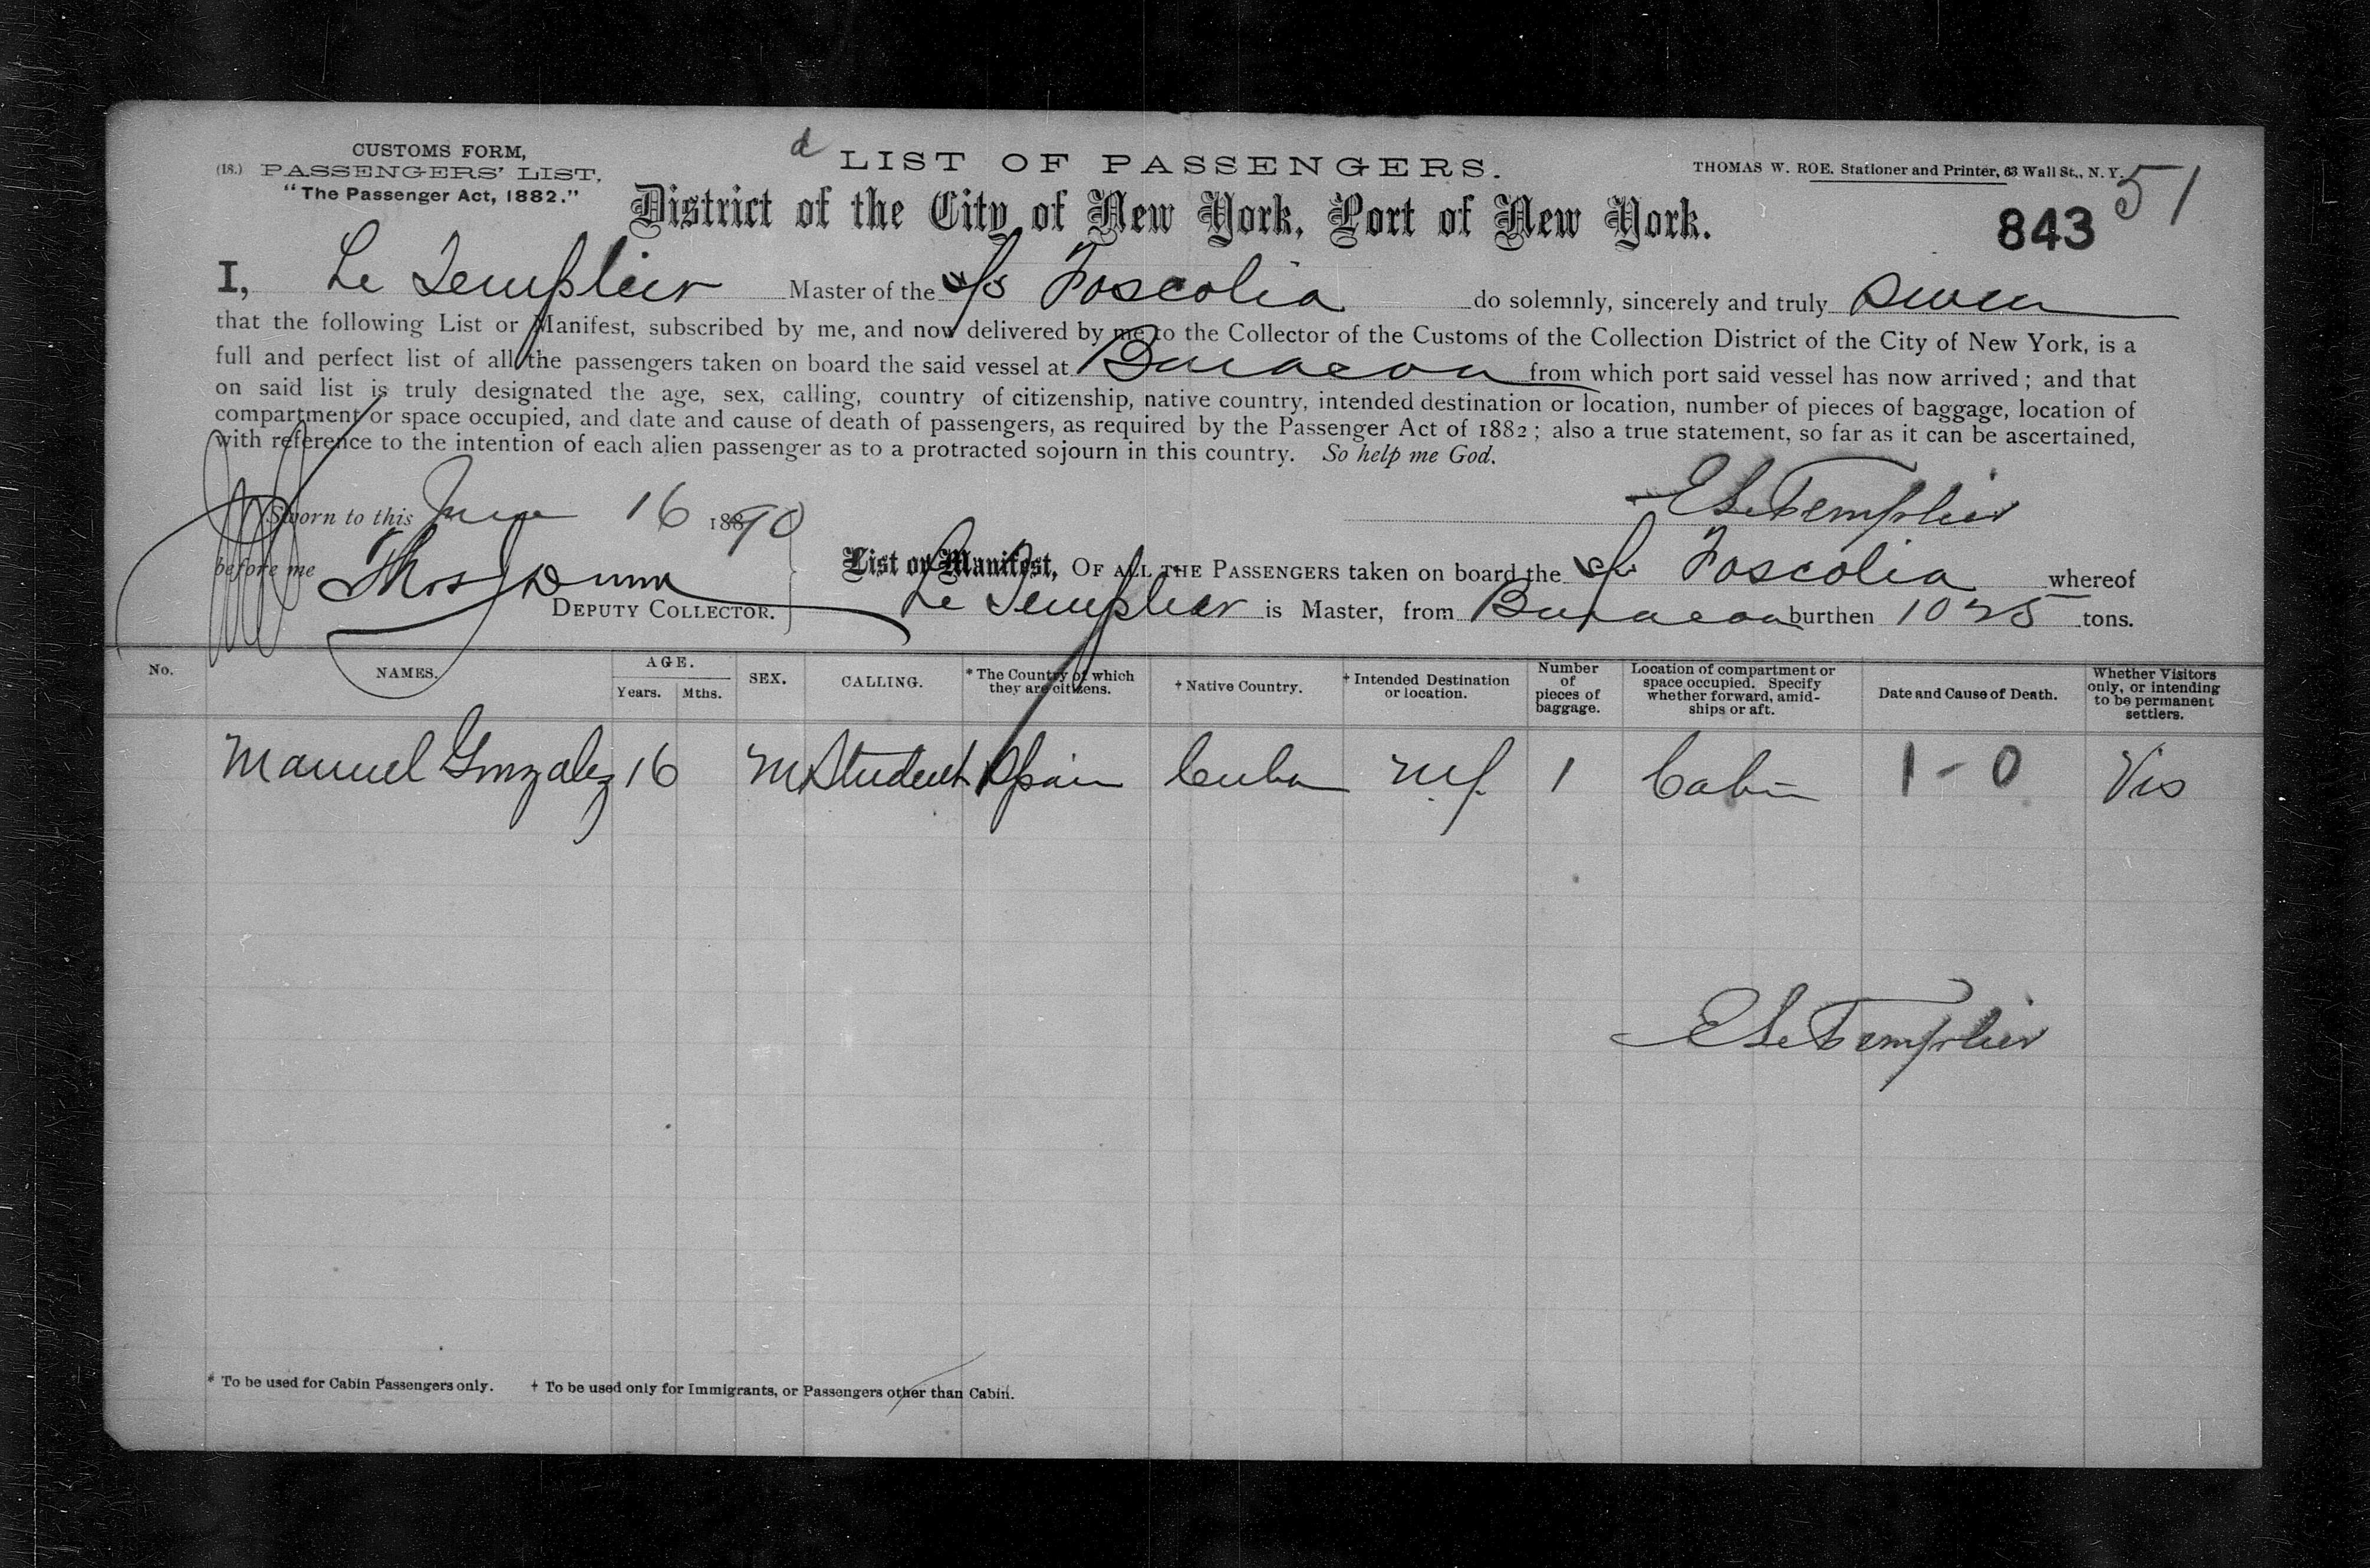 CUSTOMS FORM,
(18.) PASSENGERS' LIST,
"The Passenger Act, 1882."
d LIST OF PASSENGERS.
THOMAS W. ROE. Stationer and Printer, 63 Wall St., N. Y.
51
District of the City of New York, Port of New York.
843
I, Le Templier Master of the S/s Foscolia do solemnly, sincerely and truly Swear
that the following List or Manifest, subscribed by me, and now delivered by me to the Collector of the Customs of the Collection District of the City of New York, is a
full and perfect list of all the passengers taken on board the said vessel at Baracoa from which port said vessel has now arrived; and that
on said list is truly designated the age, sex, calling, country of citizenship, native country, intended destination or location, number of pieces of baggage, location of
compartment or space occupied, and date and cause of death of passengers, as required by the Passenger Act of 1882; also a true statement, so far as it can be ascertained,
with reference to the intention of each alien passenger as to a protracted sojourn in this country. So help me God.
Sworn to this June 16 1890
E Le Templier
before me Thos Dunn
DEPUTY COLLECTOR.
List or Manifest, OF ALL THE PASSENGERS taken on board the S/s Foscolia whereof
Le Templier is Master, from Baracoa burthen 1025 tons.
No. NAMES. AGE. Years. Mths. SEX. CALLING. * The Country of which they are citizens. † Native Country. † Intended Destination or location. Number of pieces of baggage. Location of compartment or space occupied. Specify whether forward, amidships or aft. Date and Cause of Death. Whether Visitors only, or intending to be permanent settlers.
Manuel Gonzalez 16 M Student Spain Cuba N.Y. 1 Cabin 1-0 Vis
E Le Templier
* To be used for Cabin Passengers only. † To be used only for Immigrants, or Passengers other than Cabin.